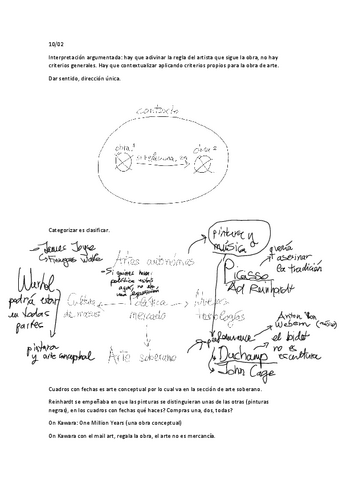 10/02
Interpretación argumentada: hay que adivinar la regla del artista que sigue la obra, no hay
criterios generales. Hay que contextualizar aplicando criterios propios para la obra de arte.
Dar sentido, dirección única.
contexto
obra 1
obra 2
Categorizar es clasificar.
James Joyce
Warhol
podría estar
en varias
partes
pintura
y arte conceptual
Artes autónomas
Cultura
de masas
mercado
Arte soberano
pintura y
música
quería
asesinar
la tradición
Picasso
Ad Reinhardt
Anton Von
Webern
performance
el bidet
no es
escultura
Duchamp
John Cage
Cuadros con fechas es arte conceptual por lo cual va en la sección de arte soberano.
Reinhardt se empeñaba en que las pinturas se distinguieran unas de las otras (pinturas
negras), en los cuadros con fechas qué haces? Compras una, dos, todas?
On Kawara: One Million Years (una obra conceptual)
On Kawara con el mail art, regala la obra, el arte no es mercancía.